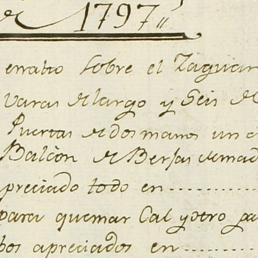 1797
sobre el Zaguan
varas de largo y Seis de
Puertas de dos manos un
Balcòn de Berjas de mad
preciado todo en
para quemar Cal y otro pa
apreciados en